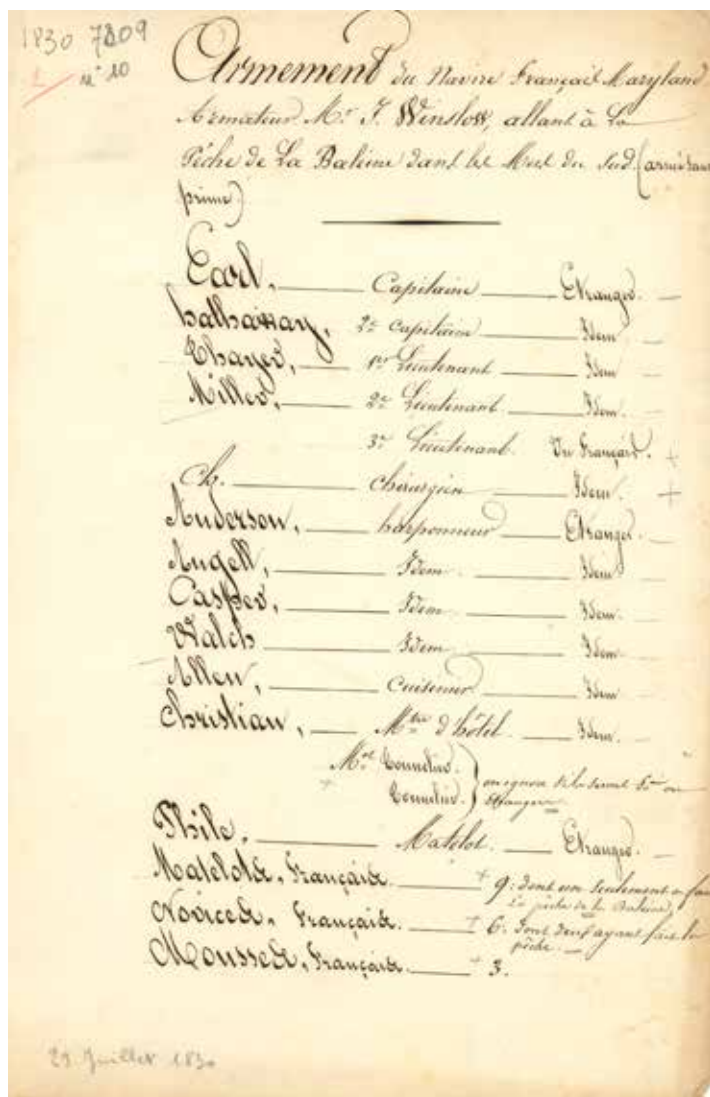 1830 7809
1 n° 10
Armement du Navire Français Maryland
Armateur Mr. J. Winslow, allant à La
Pêche de La Baleine dans les Mers du Sud (armé sans
prime)
Earl, Capitaine Etranger.
hathaway, 2e Capitaine Idem
Thayer, 1er Lieutenant Idem
Miller, 2e Lieutenant Idem
3e Lieutenant. Un Français. +
Ch. Chirurgien Idem. +
Anderson, harponneur Etranger
Angell, Idem. Idem
Casper, Idem. Idem
Walch Idem Idem
Allen, cuisinier Idem
Christian, Mtre d'hôtel. Idem.
Mot Tonnelier.
+ Tonnelier. } on ignore s'ils seront ou
Etrangers
Phile, Matelot. Etranger.
Matelots, Français. + 9: dont un seulement a fait
La pêche de la Baleine,
Novices, Français. + 6: dont deux ayant fait la
pêche.
Mousses, Français. + 3.
29 Juillet 1830